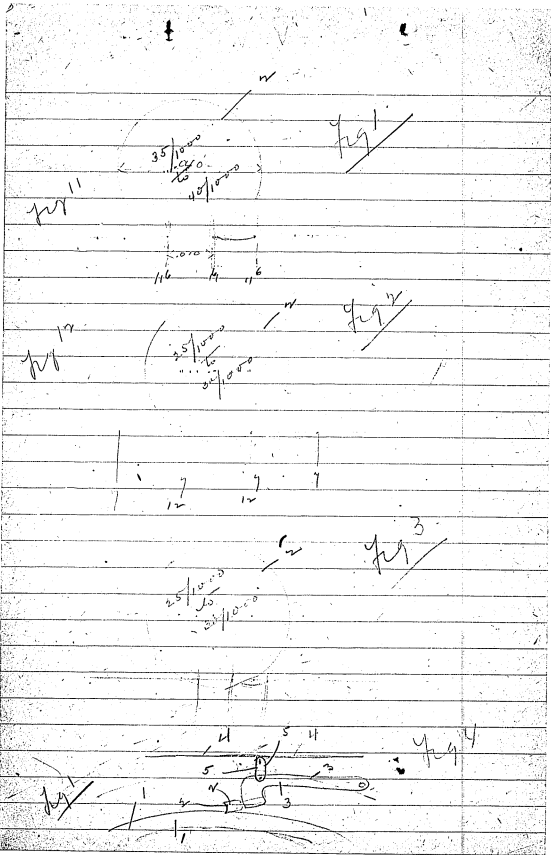 2
fig 1
35/1000
to
40/1000
fig 11
116 19 116
2
fig 2
fig 12
25/1000
to
30/1000
7 7 7
12 12
2
fig 3
25/1000
to
30/1000
4 5 4
fig 4
5 3
fig 1
1 2
2 3
1